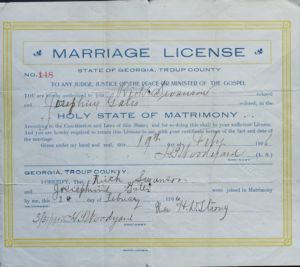 MARRIAGE LICENSE
STATE OF GEORGIA, TROUP COUNTY
NO. 148
TO ANY JUDGE, JUSTICE OF THE PEACE OR MINISTER OF THE GOSPEL
YOU are hereby authorized to join Swanson
and Josephine Gates colored, in the
HOLY STATE OF MATRIMONY
According to the Constitution and Laws of this State; and for so doing this shall be your sufficient License. And
you are hereby required to return this License to me with your certificate hereon of the fact and date of the
marriage.
Given under my hand and seal, this 19th day of Feby 190
Woodyard (L. S.)
GEORGIA, TROUP COUNTY
I CERTIFY, That Swanson
and Josephine Gates were joined in Matrimony
by me, this day of February 190
H. Strong
Woodyard